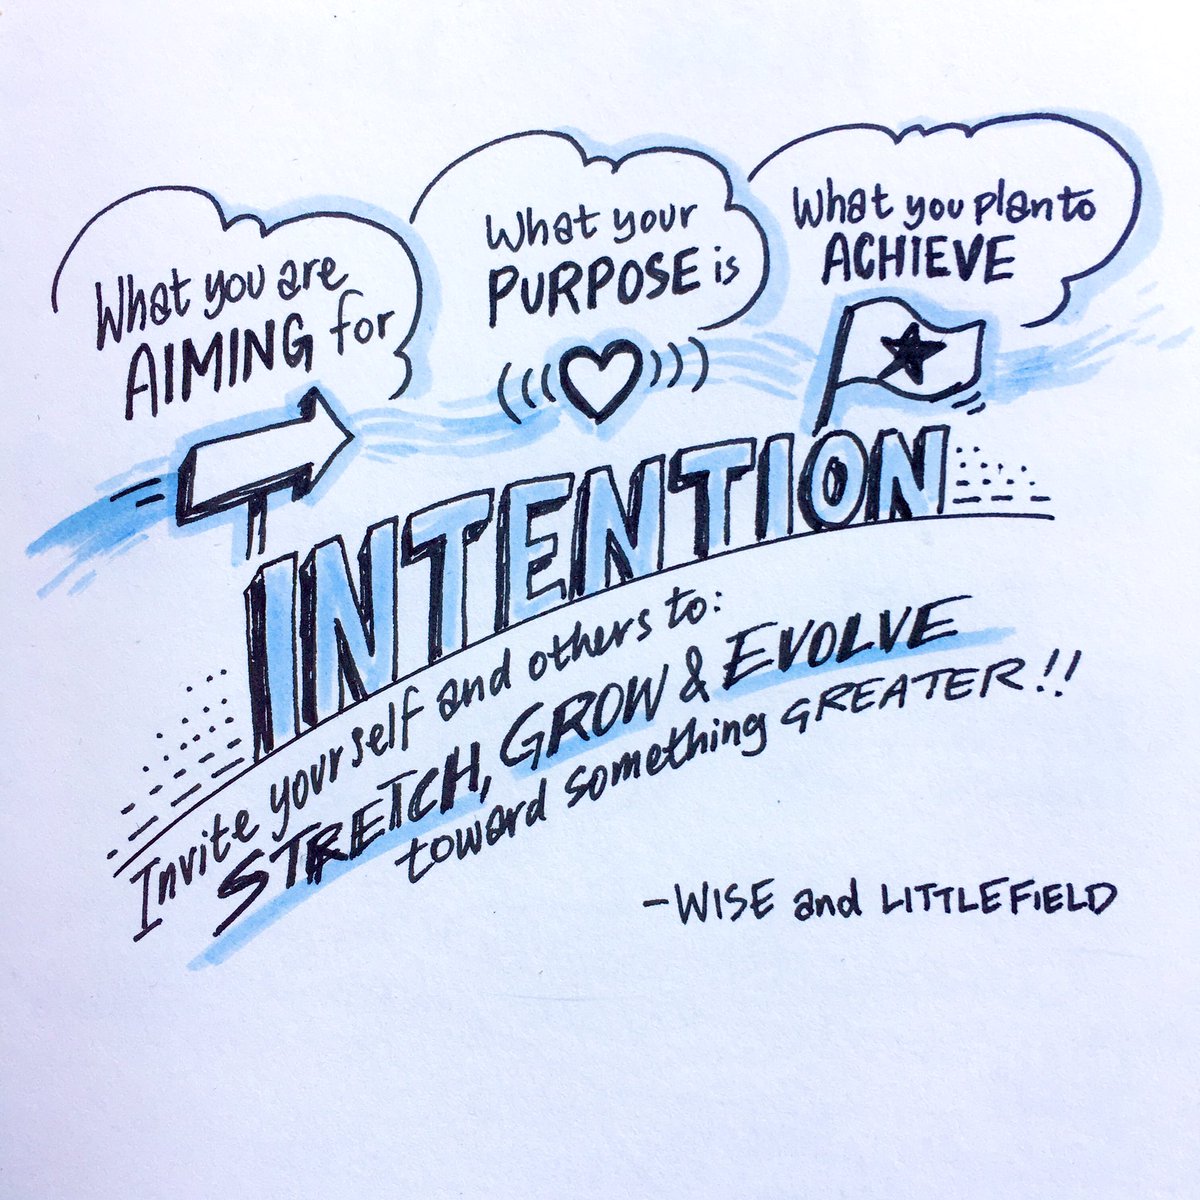 What you are
AIMING for
What your
PURPOSE is
What you plan to
ACHIEVE
INTENTION
Invite yourself and others to:
STRETCH, GROW & EVOLVE
toward something GREATER!!
-WISE and LITTLEFIELD